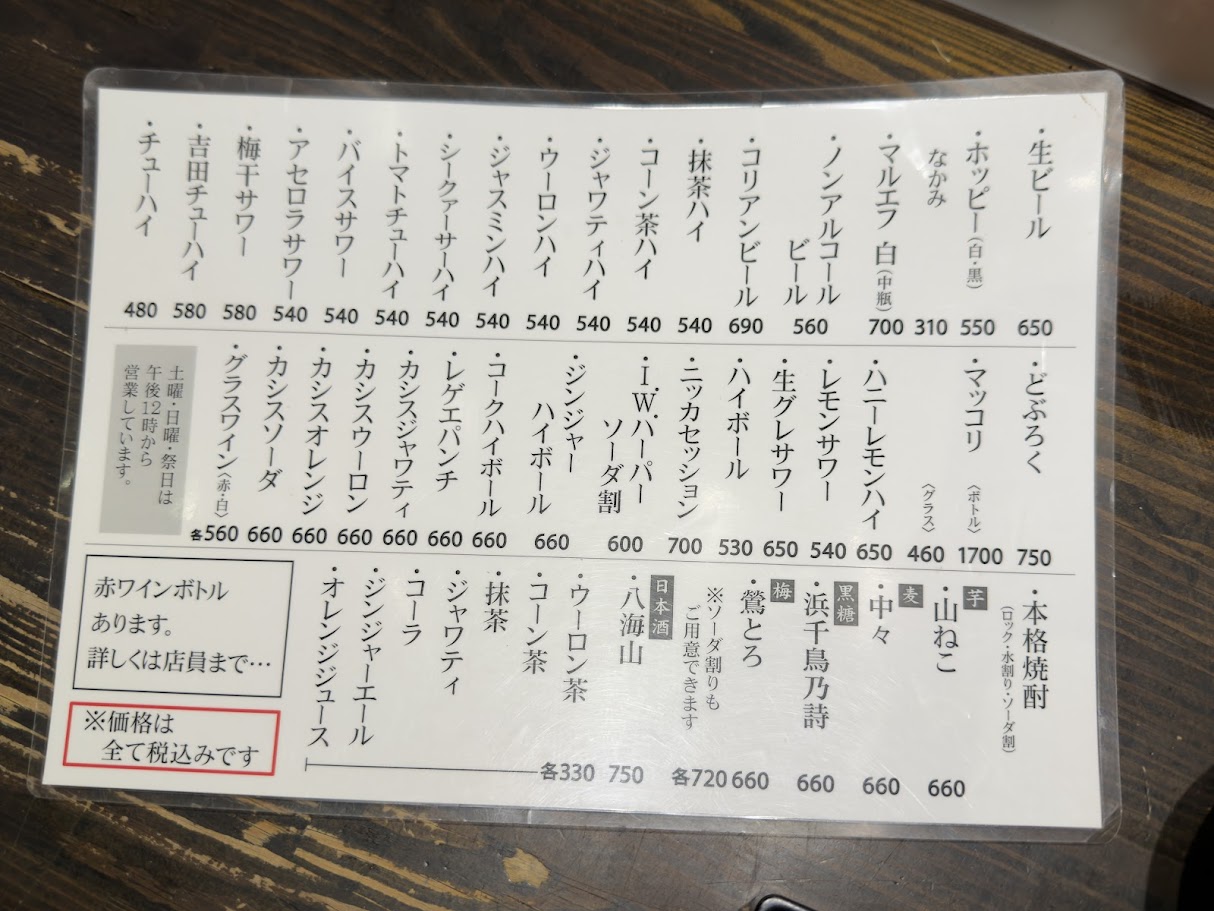 ・生ビール 650
・ホッピー（白・黒） 550
なかみ 310
・マルエフ 白（中瓶） 700
・ノンアルコール
ビール 560
・コリアンビール 690
・抹茶ハイ 540
・コーン茶ハイ 540
・ジャワティハイ 540
・ウーロンハイ 540
・ジャスミンハイ 540
・シークァーサーハイ 540
・トマトチューハイ 540
・バイスサワー 540
・アセロラサワー 540
・梅干サワー 580
・吉田チューハイ 580
・チューハイ 480
・どぶろく 750
・マッコリ 〈ボトル〉 1700
〈グラス〉 460
・ハニーレモンハイ 650
・レモンサワー 540
・生グレサワー 650
・ハイボール 530
・ニッカセッション 700
・I.W.ハーパー
ソーダ割 600
・ジンジャー
ハイボール 660
・コークハイボール 660
・レゲエパンチ 660
・カシスジャワティ 660
・カシスウーロン 660
・カシスオレンジ 660
・カシスソーダ 660
・グラスワイン〈赤・白〉 各560
土曜・日曜・祭日は
午後12時から
営業しています。
・本格焼酎
（ロック・水割り・ソーダ割）
芋
・山ねこ 660
麦
・中々 660
黒糖
・浜千鳥乃詩 660
梅
・鶯とろ 660
※ソーダ割りも
ご用意できます
各720
日本酒
・八海山 750
・ウーロン茶
・コーン茶
・抹茶
・ジャワティ
・コーラ
・ジンジャーエール
・オレンジジュース
各330
赤ワインボトル
あります。
詳しくは店員まで…
※価格は
全て税込みです